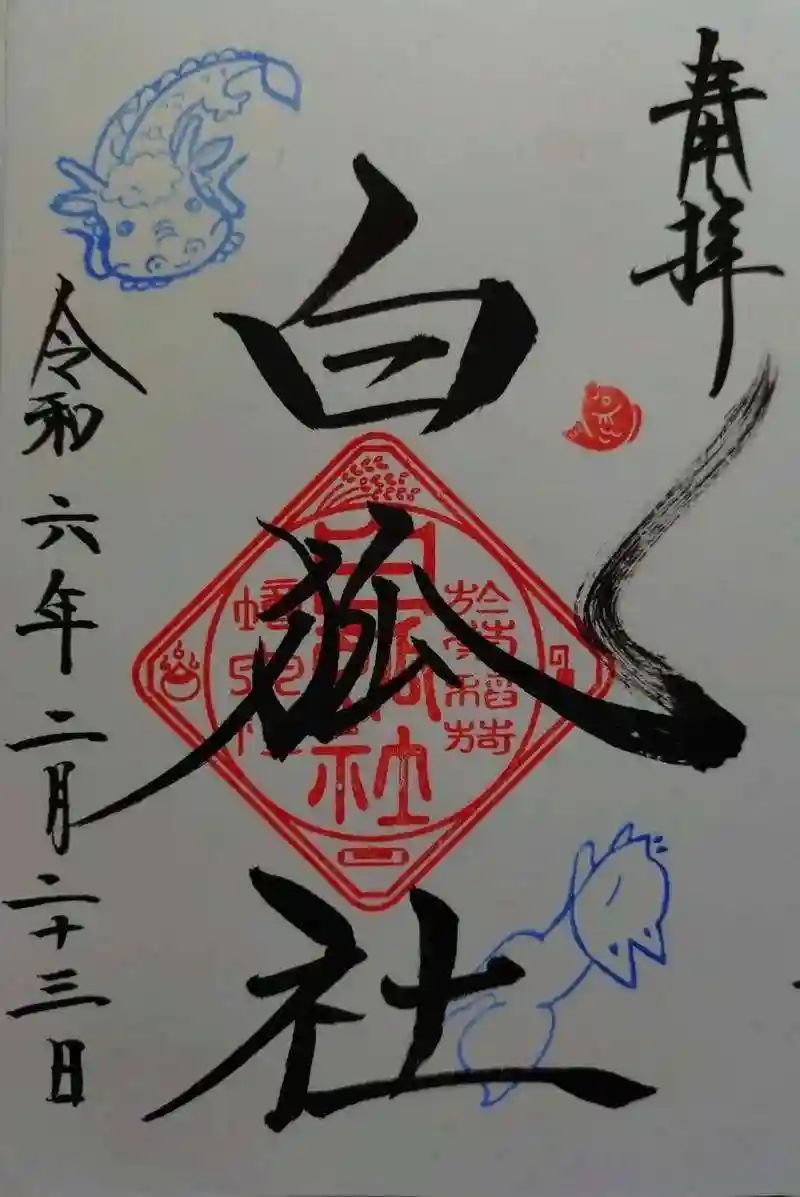 奉拝
白狐社
令和六年二月二十三日
白狐社